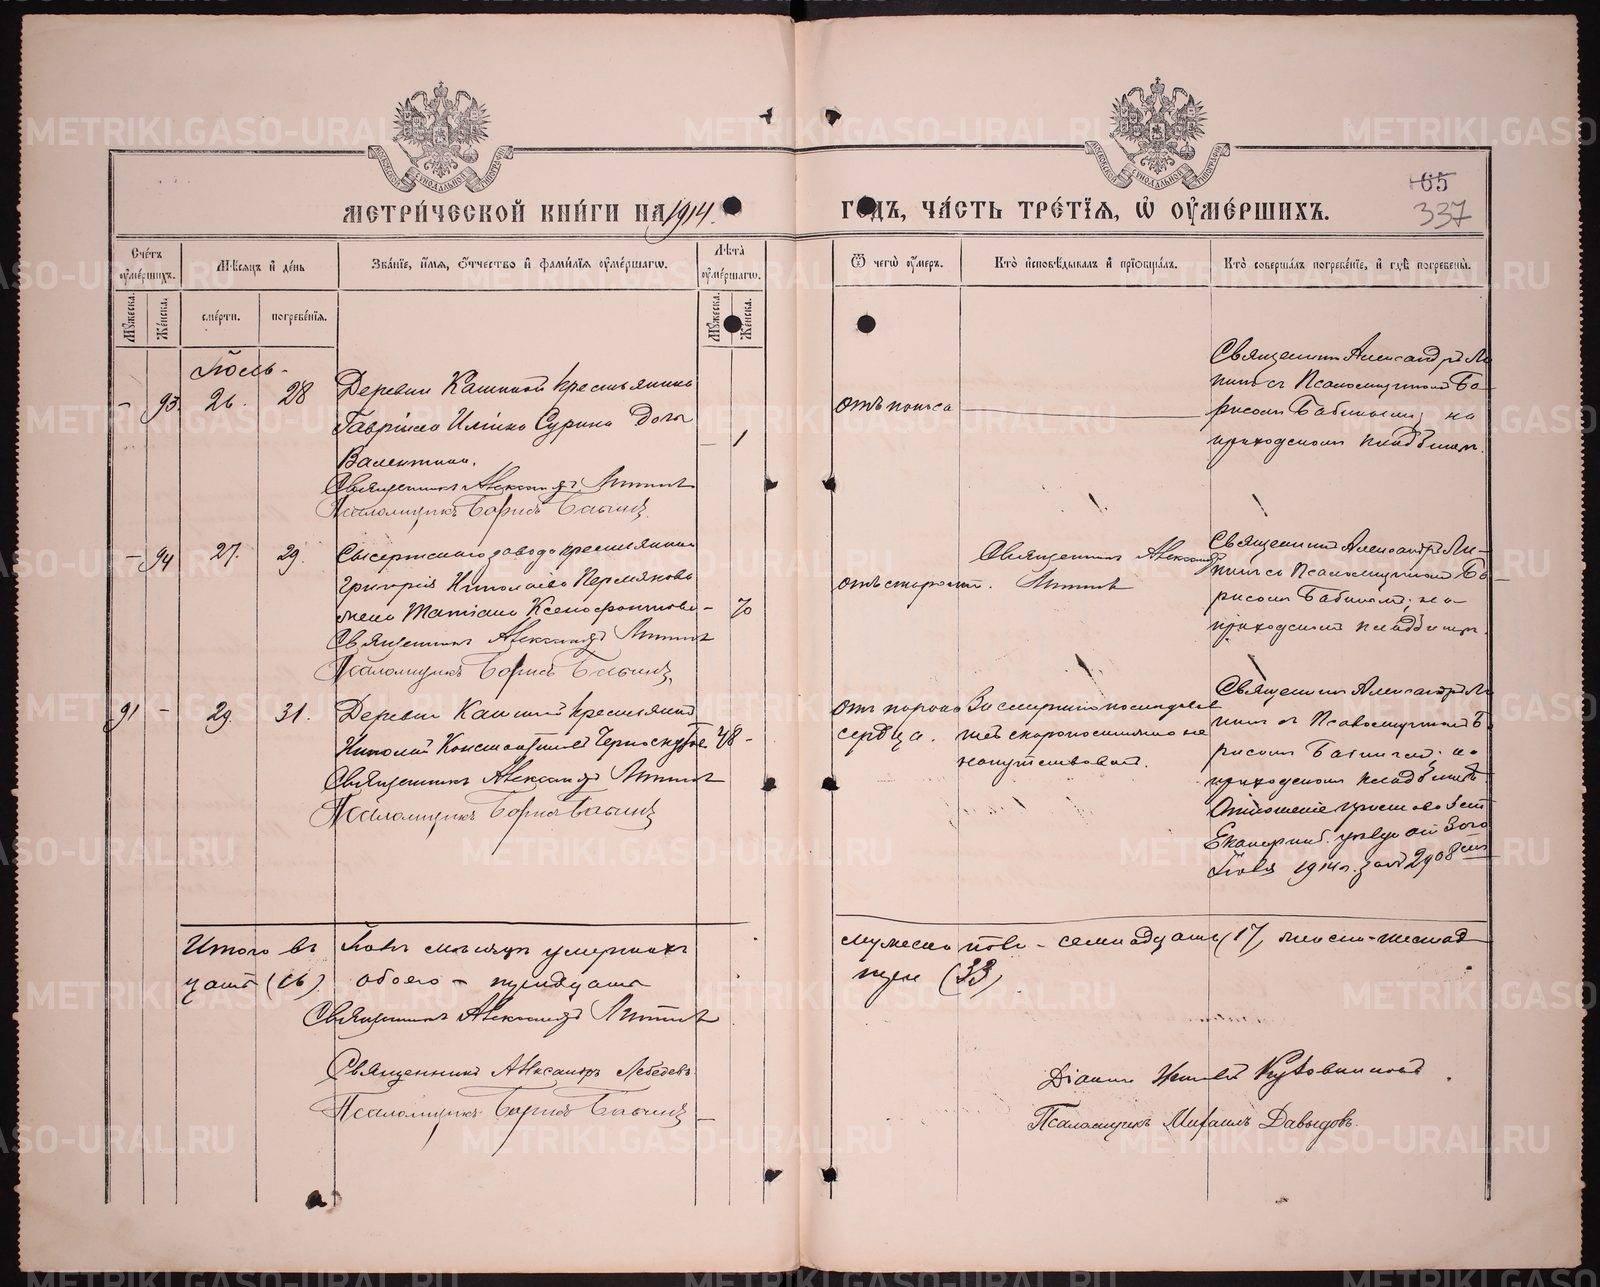 МЕТРИ́ЧЕСКОЙ КНИ́ГИ НА 1914.
ГОДЪ, ЧА́СТЬ ТРЕ́ТІЯ, Ѽ ОУМЕ́РШИХЪ.
65
337
Сче́тъ оуме́ршихъ.
Мѣсяцъ и де́нь
Зва́ніе, и́мя, о́тчество и фами́лія оуме́ршагѡ.
Лѣта̀ оуме́ршагѡ.
Ѿ чегѡ̀ оу́меръ.
Кто̀ исповѣ́дывалъ и пріобща́лъ.
Кто̀ соверша́лъ погребе́ніе, и гдѣ̀ погребены̀.
Мꙋ́жеска.
Же́нска.
сме́рти.
погребе́нія.
Мꙋ́жеска.
Же́нска.
Іюль
- 93. 26. 28
Деревни Кашиной крестьянина
Гавріила Ильина Сурина дочь
Валентина.
- 1
Священникъ Александръ
Псаломщикъ Борисъ Бабинъ
отъ поноса
Священникъ Александръ
съ Псаломщикомъ Бо-
рисомъ Бабинымъ; на
приходскомъ кладбищѣ.
- 94 27. 29.
Сысертскаго завода крестьянина
Григорія Николаева Пермякова
жена Татіана Ксенофонтова
- 70
Священникъ Александръ
Псаломщикъ Борисъ Бабинъ
отъ старости.
Священникъ Александръ
Священникъ Александръ
съ Псаломщикомъ Бо-
рисомъ Бабинымъ; на
приходскомъ кладбищѣ.
91 - 29. 31.
Деревни Кашиной крестьянинъ
Николай Константиновъ Черноскутовъ
48 -
Священникъ Александръ
Псаломщикъ Борисъ Бабинъ
отъ порока
сердца.
За смертію послѣдовав
шей скоропостижно не
напутствованъ.
Священникъ Александръ
съ Псаломщикомъ Бо
рисомъ Бабинымъ; на
приходскомъ кладбищѣ
Отношеніе пристава 3 ст
Екатеринб. уѣзда отъ 30го
Іюля 1914 г. за № 2908
Итого въ Іюлѣ мѣсяцѣ умершихъ
мужеска пола - семнадцать (17), женска - шестнад
цать (16) обоего - тридцать
три (33)
Священникъ Александръ
Священникъ Александръ Лебедевъ
Псаломщикъ Борисъ Бабинъ
Діаконъ
Псаломщикъ Михаилъ Давыдовъ.
METRIKI.GASO-URAL.RU